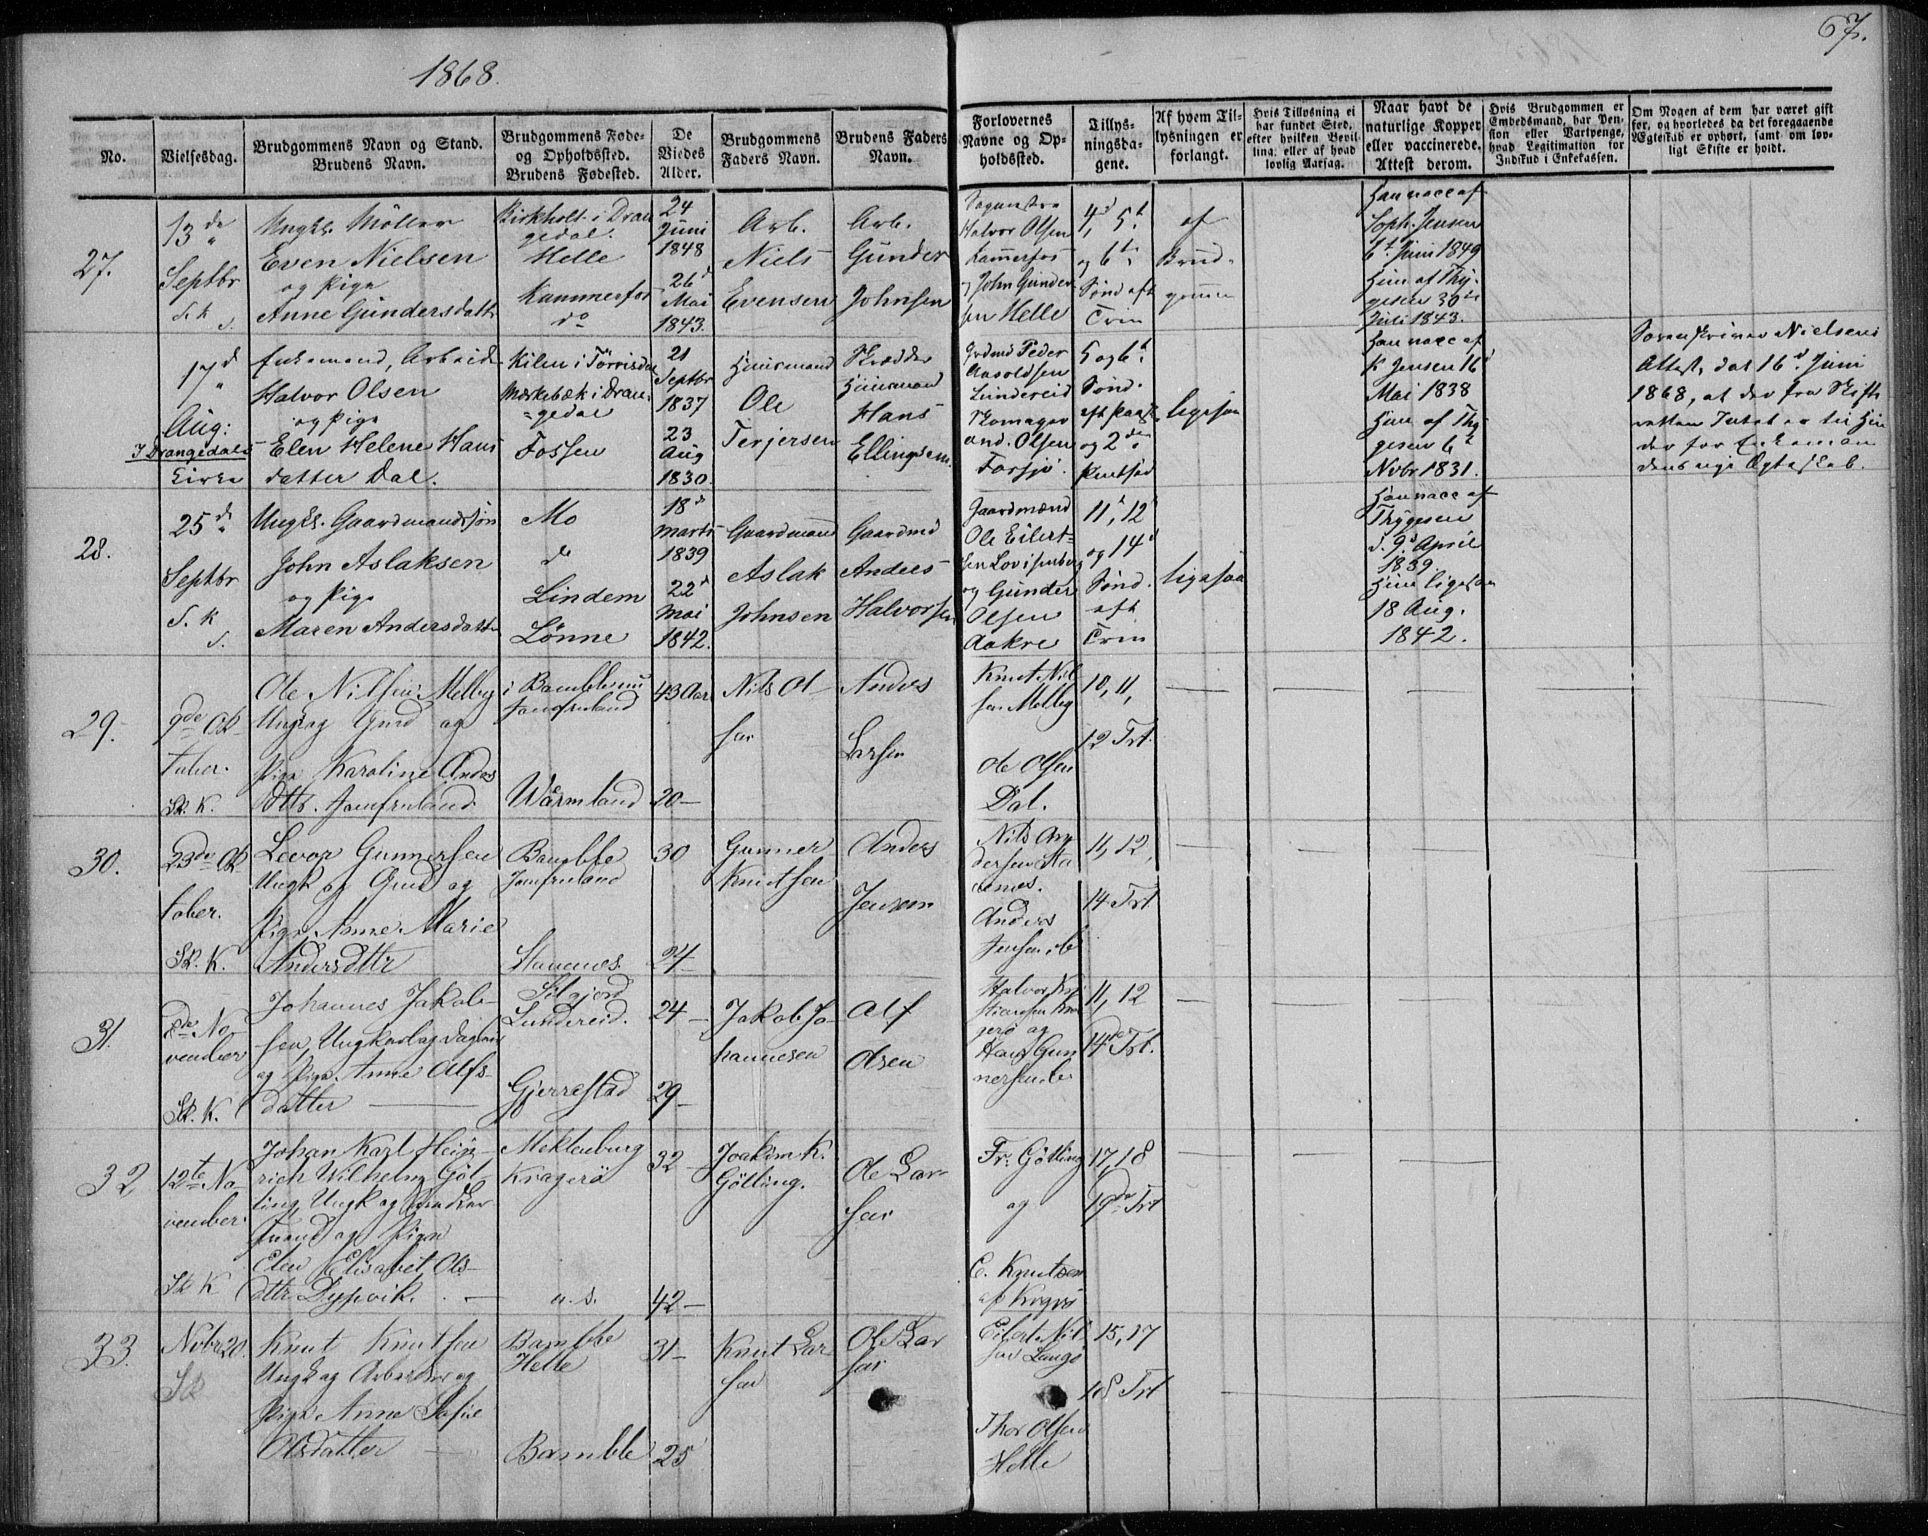 1868.
67.
No.
Vielsesdag.
Brudgommens Navn og Stand.
Brudens Navn.
Brudgommens Føde-
og Opholdssted.
Brudens Fødested.
De
Viedes
Alder.
Brudgommens
Faders Navn.
Brudens Faders
Navn.
Forlovernes
Navne og Op-
holdssted.
Tillys-
ningsda-
gene.
Af hvem Til-
lysningen er
forlangt.
Hvis Tillysning ei
har fundet Sted,
efter hvilken Bevil-
ling, eller af hvad
lovlig Aarsag.
Naar havt de
naturlige Kopper
eller vaccinerede.
Attest derom.
Hvis Brudgommen er
Embedsmand, har Pen-
sion eller Vartpenge,
hvad Legitimation for
Indskud i Enkekassen.
Om Nogen af dem har været gift
før, og hvorledes da det foregaaende
Ægteskab er ophørt, samt om lov-
ligt Skifte er holdt.
27.
13de
Septbr
S. K
Ungk. Möller
Even Nielsen
og Pige
Anne Gundersdatter
Birkholt i Dran
gedal.
Helle
Kammerfos
do
24
Juni
1848
26d
Mai
1843.
Arb.
Niels
Evensen
Arb.
Gunder
Johnsen
Halvor Olsen
Kammerfos
og John Gunder
sen Helle
4d, 5t
og 6te
Sønd eft
Trin
af
Brud-
gommen
Han vacc af
Soph. Jensen
6t Juni 1849
Hun af Thy-
gesen 30te
Juli 1843.
17d
Aug:
I Drangedals
Kirke
Enkemand, Arbeider
Halvor Olsen
og Pige
Elen Helene Hans
datter Dal.
Kilen i Tørrisdal
Mærkebæk i Dran-
gedal
Fossen
21
Septbr
1837
23
Aug
1830.
Huusmand
Ole
Terjersen
Skrædder
Huusmand
Hans
Ellingsen
Grdmd Peder
Aasoldsen
Lundereid
Skomager
And. Olsen
Farsjø.
5 og 6t
Sønd.
eft Paaske
og 2den
Pintsed
ligesaa
Han vacc af
K Jensen 16d
Mai 1838
Hun af Thy
gesen 6t
Novbr 1831.
Sorenskriver Nielsens
Attest, dat 16d Juni
1868, at der fra Skifte
retten Intet er til Hin
der for Enkeman
dens nye Ægteskab.
28.
25de
Septbr
S. K
Ungk. Gaardmandssøn
John Aslaksen
og Pige
Maren Andersdatter
Mo
do
Lindem
Lønne
18de
Marts
1839
22d
Mai
1842.
Gaardmand
Aslak
Johnsen
Gaardmd
Anders
Halvorsen
Gaardmænd
Ole Eilert-
sen Lovisenberg
og Gunder
Olsen
Aakre
11d, 12t
og 14d
Sønd.
eft
Trin
ligesaa
Han vacc af
Thygesen
d. 9d April
1839.
Hun ligesaa
18 Aug.
1842.
29.
9de Ok-
tober.
Sk. K.
Ole Nilsen Melby
Ungkg Gmd og
Pige Karoline Anders
dttr. Jomfruland.
i Bamble nu
Jomfruland
Wærmland
43 Aar
20 –
Nils Ol-
sen
Anders
Larsen
Knut Nil
sen Melby
Ole Olsen
Dal.
10, 11,
12 Trt.
30.
23de Ok
tober.
Sk. K.
Levor Gunnersen
Ungk og Gmd og
Pige Anne Marie
Andersdttr
Bamble
Jomfruland
Stavenes.
30
24
Gunner
Knutsen
Anders
Jensen
Nils An
dersen Sta
venes.
Anders
Jensen ib
11, 12,
14 Trt
31.
8de No
vember
Sk. K.
Johannes Jakob-
sen, Ungkarl og
og Pige Anne Alfs-
datter
Silgjord
Lundereid.
Gjerrestad
24 –
29 –
Jakob Jo-
hannesen
Alf
Olsen
Halvor Kri
stiansen Kra
gerø og
Hans Gun
nersen ib
11, 12
14de Trt.
32
12te No-
vember.
Sk K
Johan Karl Hein-
rich Wilhelm Göt
ting, Ungk og
og Pige
Elen Elisabet Ols-
dttr Dypvik.
Meklenburg
Kragerö
u. s.
32 –
42 –
Joakim K.
Götting.
Ole Lar-
sen
Fr. Götting
og
E. Knutsen
af Kragerø
17, 18
19de Trt
33.
Novbr 20.
Sk
Knut Knutsen
Ungk og Arbeider og
Pige Anne Sofie
Olsdatter
Bamble
Helle
Bamble
31 –
25
Knut Lar-
sen
Ole Lar
sen
Eilert Nil
sen Langø
Thor Olsen
Helle
15, 17
18 Trt